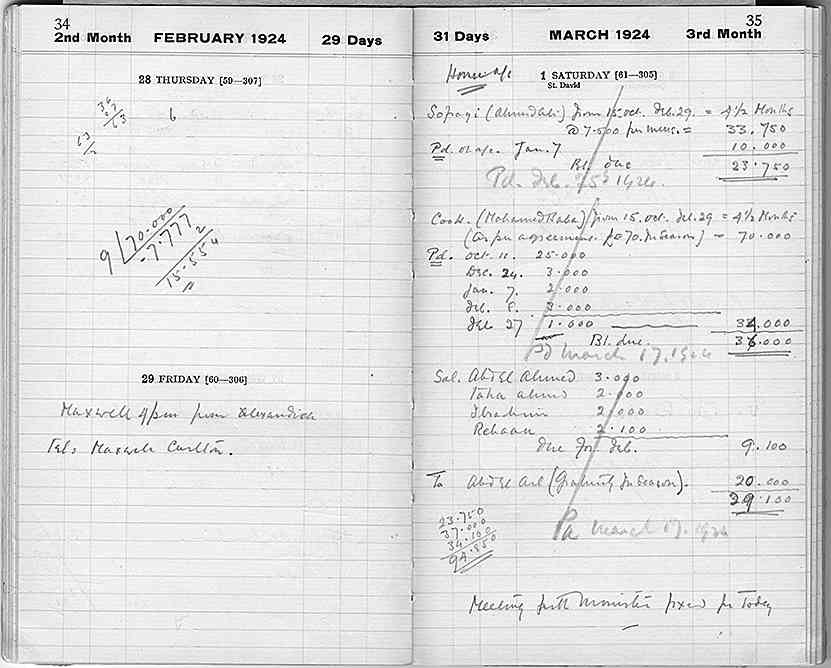 34
2nd Month FEBRUARY 1924 29 Days
28 THURSDAY [59—307]
6
9 70.000
7.777
2
15.554
29 FRIDAY [60—306]
Maxwell 4/pm from Alexandria
Tel: Maxwell Carlton.
35
31 Days MARCH 1924 3rd Month
House a/c 1 SATURDAY [61—305]
St. David
Sofragi (Ahmed Ali) from 15. Oct. Feb. 29. = 4 1/2 Months
@ 7.500 per mens. = 33.750
Pd. on a/c. Jan. 7 10.000
Bl. due 23.750
Pd. Feb. 1924.
Cook. (Mohamed Baba) from 15. Oct. Feb. 29 = 4 1/2 Months
(as per agreement. 70. In Season) = 70.000
Pd. Oct. 11. 25.000
Dec. 24. 3.000
Jan. 7. 2.000
Feb. 8. 3.000
Feb 27 1.000 34.000
Bl. due. 36.000
Pd March 17. 1924
Sal. Abd El Ahmed 3.000
Taha Ahmed 2.000
Ibrahim 2.000
Rehaan 2.100
due for Feb. 9.100
To Abd El Aal (Gratuity In Season). 20.000
29.100
23.750
37.000
34.100
94.850
Pd March 17. 1924
Meeting with Minister fixed for Today